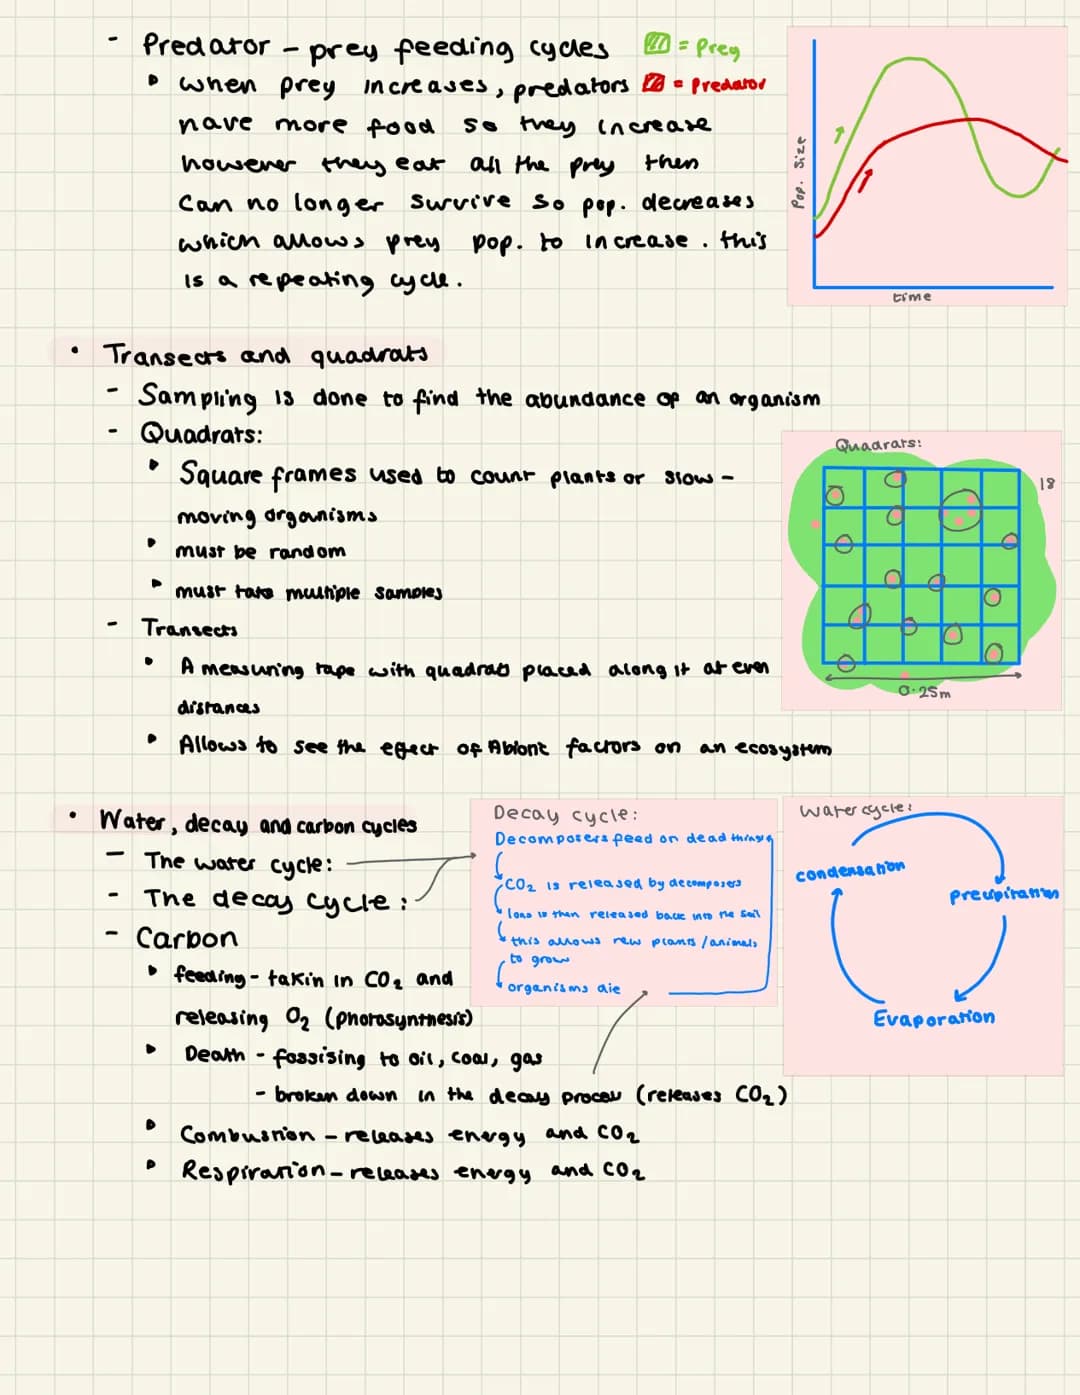 - Predator - prey feeding cycles
= Prey
= Predator
when prey increases, predators
have more food so they increase
however they eat all the prey then
can no longer survive so pop. decreases
which allows prey pop. to increase. this
is a repeating cycle.
Pop. size
time
• Transects and quadrats
- Sampling is done to find the abundance of an organism
- Quadrats:
Square frames used to count plants or slow -
moving organisms
must be random
must take multiple samples
- Transects
A measuring tape with quadrats placed along it at even
distances
Allows to see the effect of Abiotic factors on an ecosystem
Quadrats:
18
0.25m
• Water, decay and carbon cycles
- The water cycle:
- The decay cycle:
- Carbon
feeding - takin in CO2 and
releasing O2 (photosynthesis)
Death - fossising to oil, coal, gas
- broken down in the decay process (releases CO2)
Combustion - releases energy and CO2
Respiration - releases energy and CO2
Decay cycle:
Decomposers feed on dead things
CO2 is released by decomposers
is then released back into the soil
this allows new plants/animals
to grow
organisms die
Water cycle:
condensation
precipitation
Evaporation